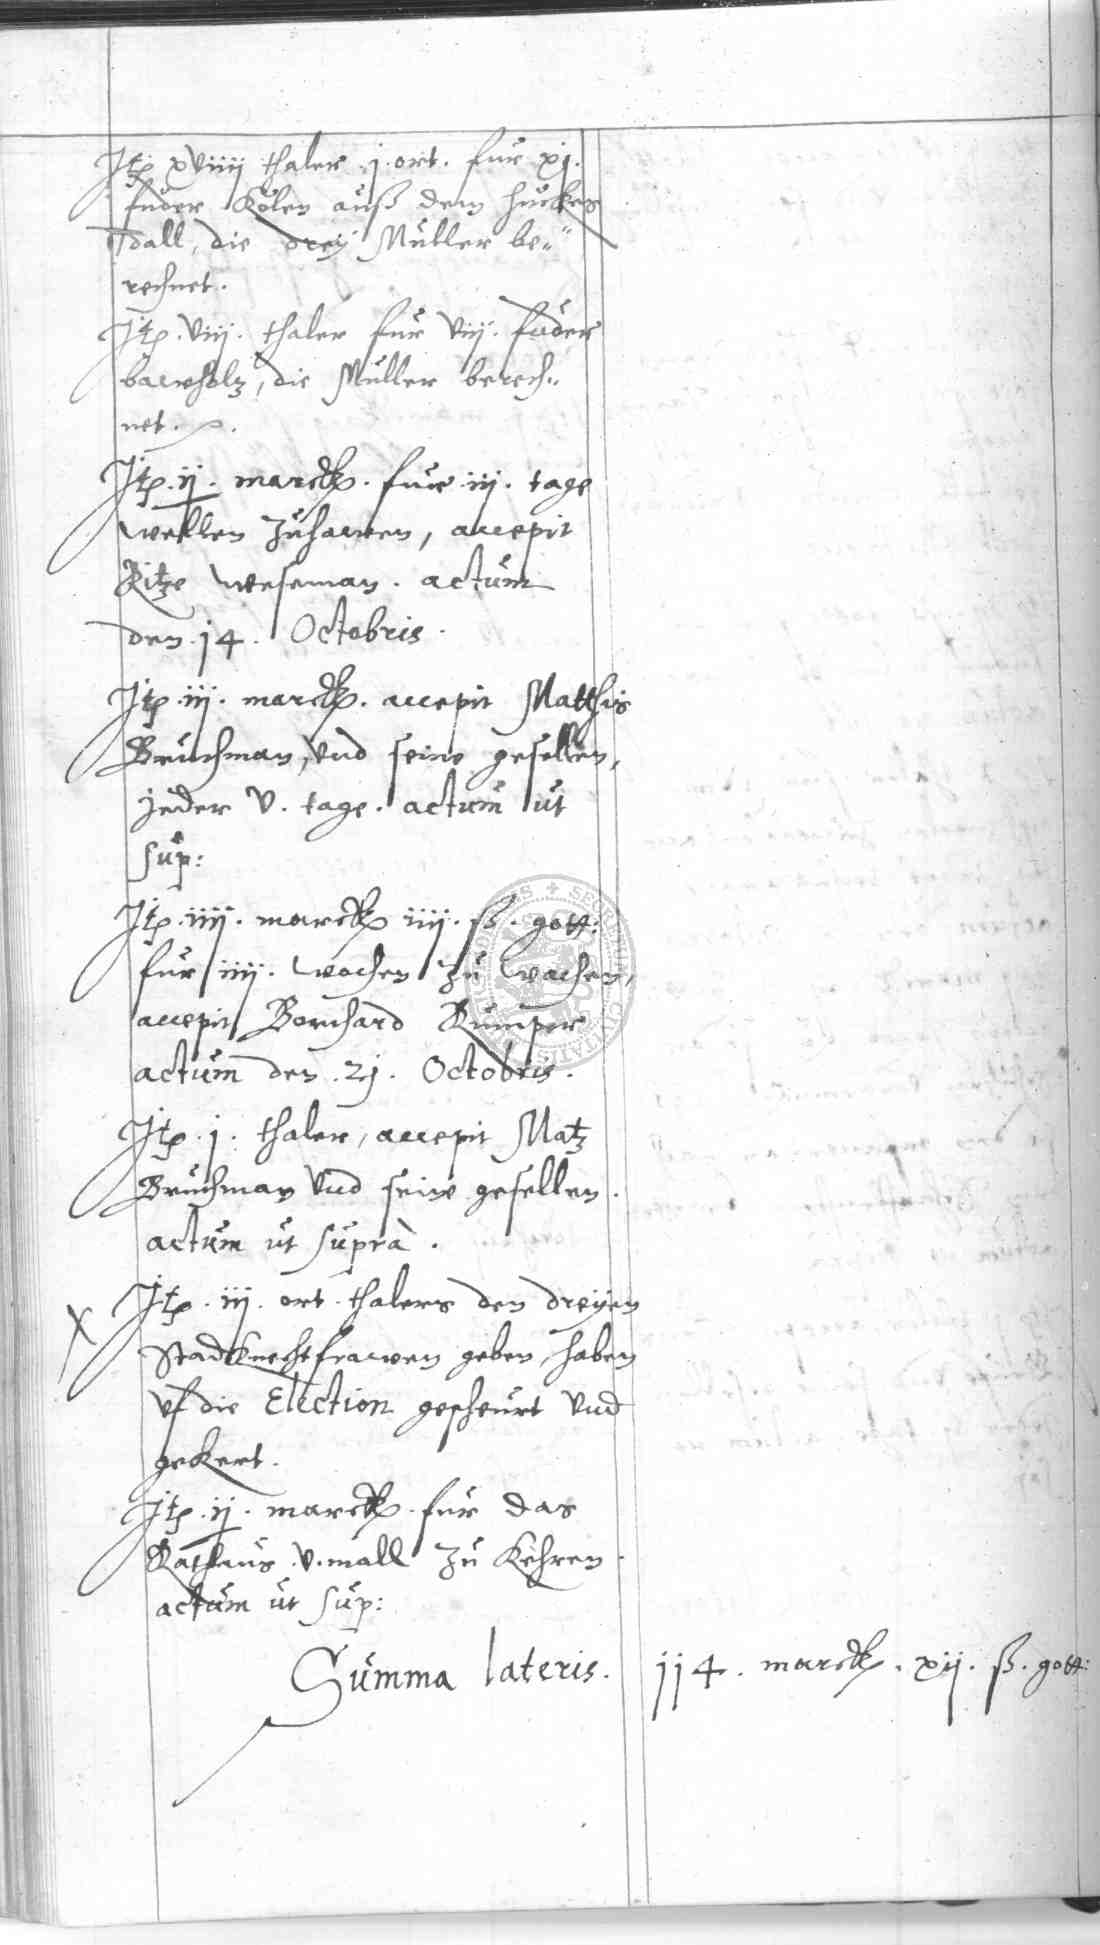 Itē xviiij thaler .j. ort. fur xj.
fuder Kolen auß dem huckes
dall, die drey Müller be„
rechnet.
Itē. viij. thaler fur viij. fuder
bawholtz, die Müller berech„
net.
Itē. ij. marck. fur iij. tage
wellen zuhawen, accepit
Ritze Weseman. actum
den. 14. Octobris.
Itē. iij. marck. accepit Matthis
Bruchman, vnd seine gesellen,
jeder v. tage. actum ut
sup:
Itē. iiij. marck iiij. ß. gott:
fur iiij. wochen zu wachen,
accepit Borchard Kumper
actum den. 21. Octobris.
Itē. j. thaler, accepit Matz
Bruchman vnd seine gesellen.
actum ut suprà.
X Itē. iij. ort. thalers den dreyen
Stadtknechtfrawen geben, haben
vf die Election gescheurt vnd
gekert.
Itē. ij. marck. fur das
Rathaus v. mall zu Kehren.
actum ut sup:
Summa lateris. 114. marck. xij. ß. gott: